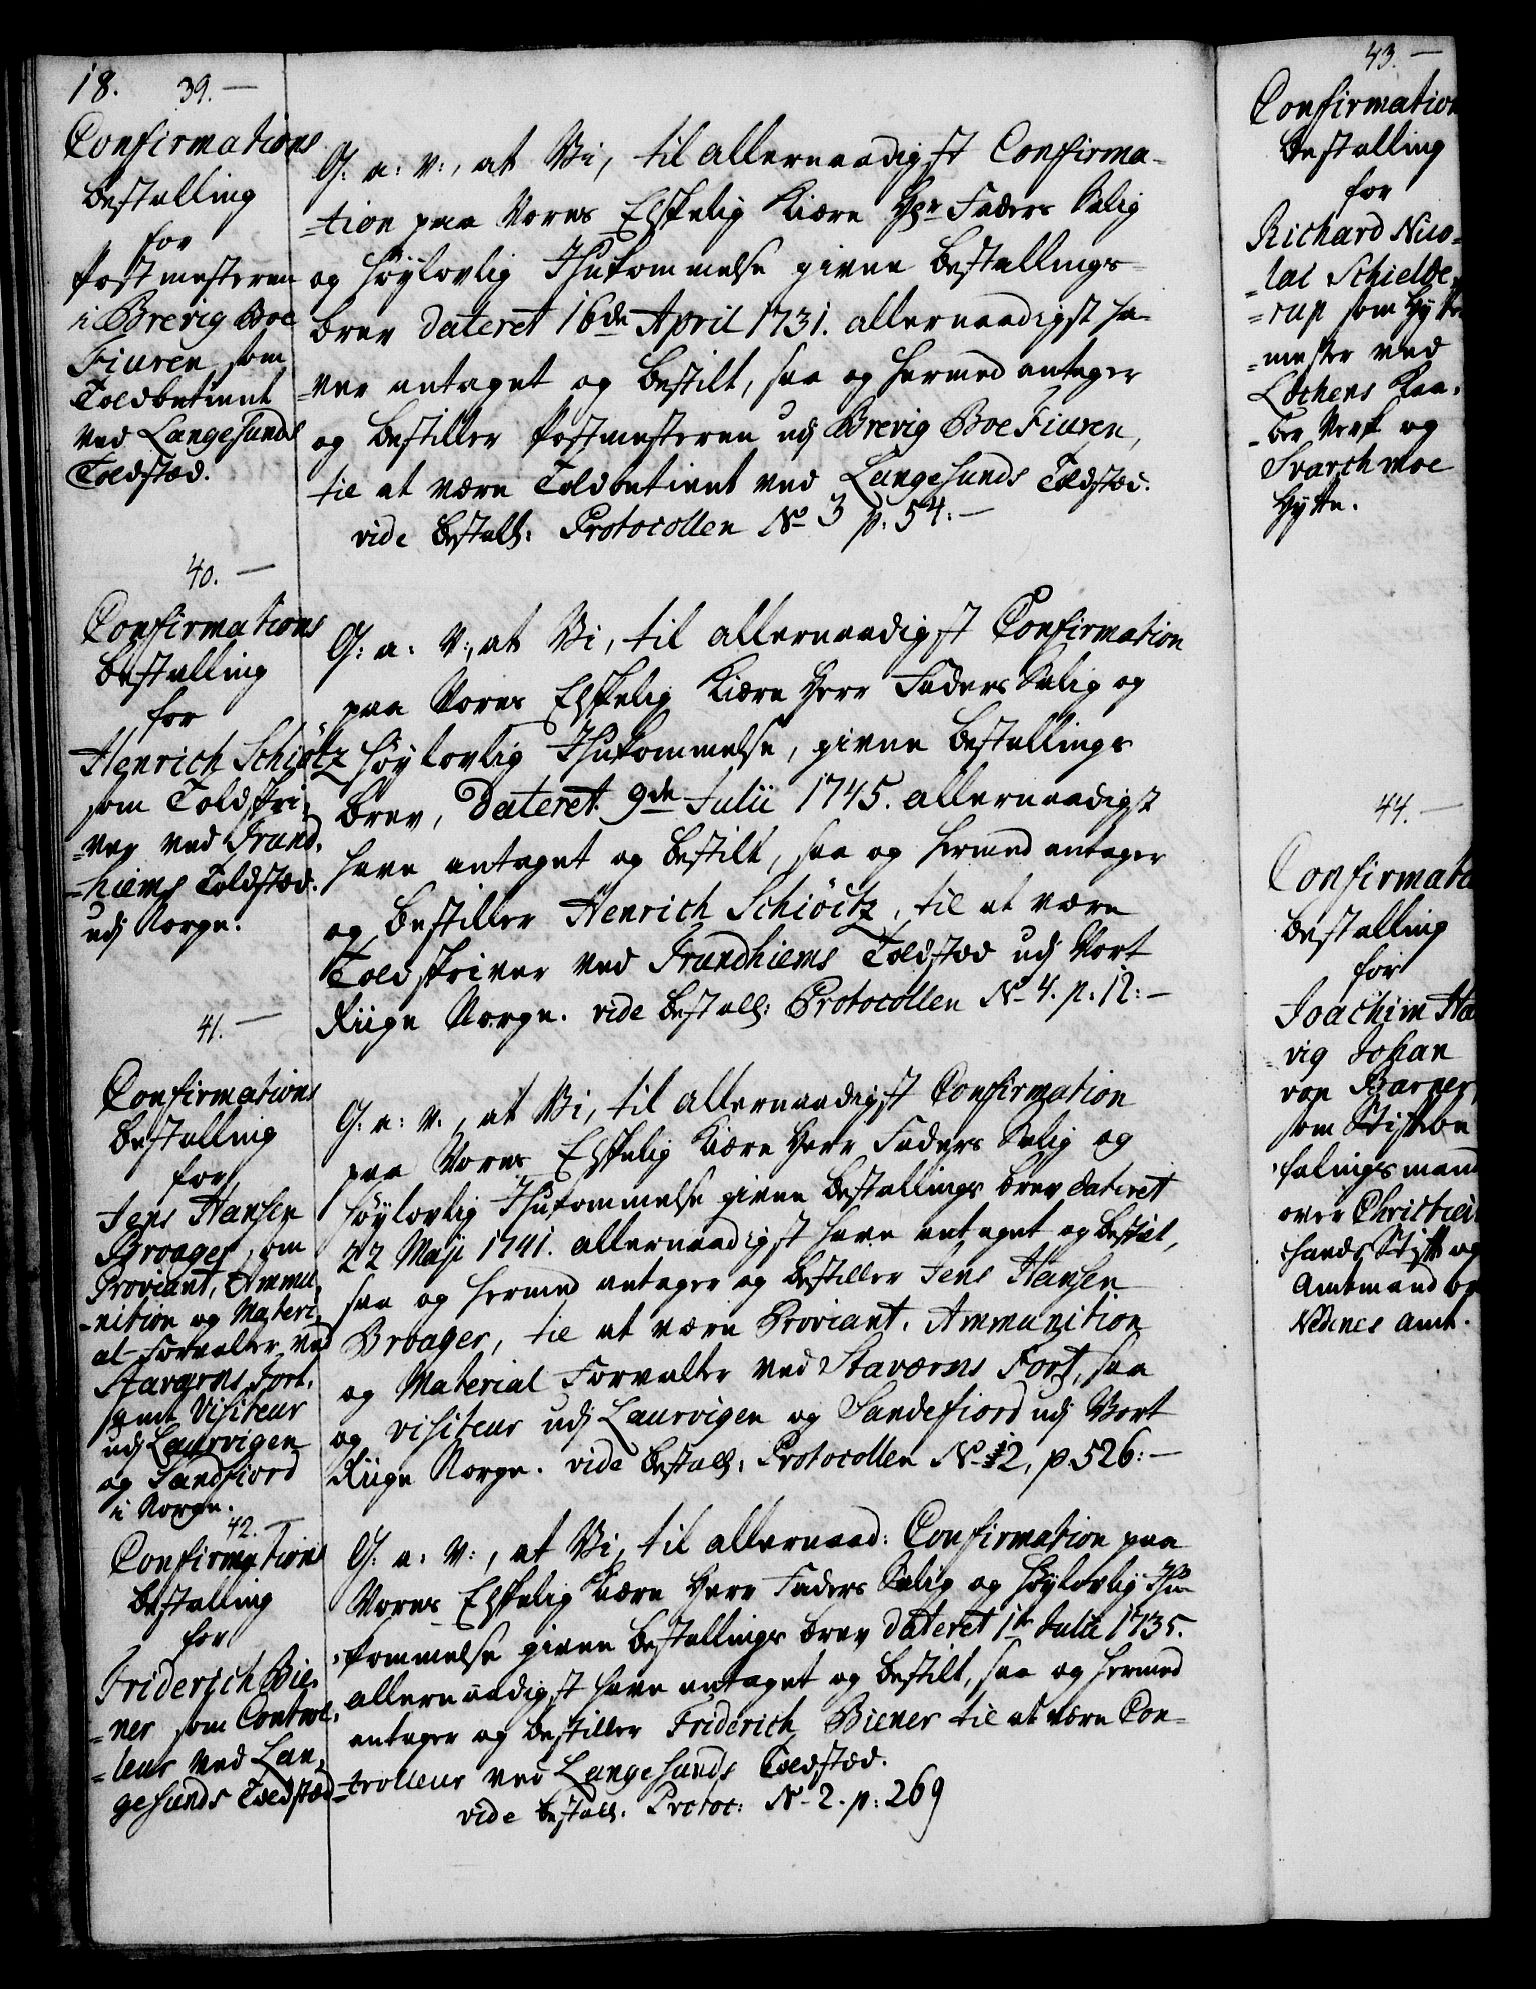 18.
39.—
Confirmations
bestalling
for
Postmesteren
i Brevig Boe
Fiuren som
Toldbetient
ved Langesunds
Toldstæd.
G: a: v:, at Vi, til allernaadigst Confirma-
-tion paa Vores Elskelig Kiære Hr Faders Salig
og Høylovlig Ihukommelse givne bestallings-
brev dateret 16de April 1731. allernaadigst ha-
-ver antaget og bestilt, saa og hermed antager
og bestiller Postmesteren udj Brevig Boe Fiuren,
til at være Toldbetient ved Langesunds Toldstæd.
vide bestall: Protocollen No 3 p. 54:—
40.—
Confirmations
bestalling
for
Henrich Schiøtz
som Toldskri-
-ver ved Trund-
-hiems Toldstæd
udj Norge.
G: a: V:, at Vi, til allernaadigst Confirmation
paa Vores Elskelig Kiære Herr Faders Salig og
Høylovlig Ihukommelse, givne bestallings
brev, dateret 9de Julii 1745. allernaadigst
have antaget og bestilt, saa og hermed antager
og bestiller Henrich Schiöitz, til at være
Toldskriver ved Trundhiems Toldstæd udj Vort
Riige Norge. vide bestall: Protocollen No 4. p. 12:—
41.—
Confirmations
bestalling
for
Jens Hansen
Broager som
Proviant, Ammu-
-nition og Materi-
al-Forvalter ved
Staværns Fort,
samt Visiteur
udj Laurvigen
og Sandfiord
i Norge.
G: a: v:, at Vi, til allernaadigst Confirmation
paa Vores Elskelig Kiære Herr Faders Salig og
Høylovlig Ihukommelse givne bestallings brev dateret
22 Maji 1741. allernaadigst have antaget og bestilt,
saa og hermed antager og bestiller Jens Hansen
Broager, til at være Proviant, Ammunition
og Material Forvalter ved Staværns Fort, saa
og visiteur udj Laurvigen og Sandefiord udj Vort
Riige Norge. vide bestall: Protocollen No 2, p. 526:—
42.—
Confirmations
bestalling
for
Friderich Bie-
-ner som Control-
-leur ved Lan-
gesunds Toldstæd
G: a: V:, at Vi, til allernaad: Confirmation paa
Vores Elskelig Kiære Herr Faders Salig og Høylovlig Ihu-
-kommelse givne bestallings brev dateret 1te Julii 1735.
allernaadigst have antaget og bestilt, saa og hermed
antager og bestiller Friderich Biener til at være Con-
-trolleur ved Langesunds Toldstæd.
vide bestall. Protoc: No 2. p: 269
43.—
Confirmation
bestalling
for
Richard Nico-
-lai Schielde-
-rup som Hytte
-mester ved
Løchens Kaa-
-ber Verk og
Svarchmoe
Hytte.
44.—
Confirmati
bestalling
for
Joachim Ha
vig Johan
von Barner,
som Stiftbe
-falingsmand
over Christian
sands Stift og
Amtmand ov
Nedenes Amt.